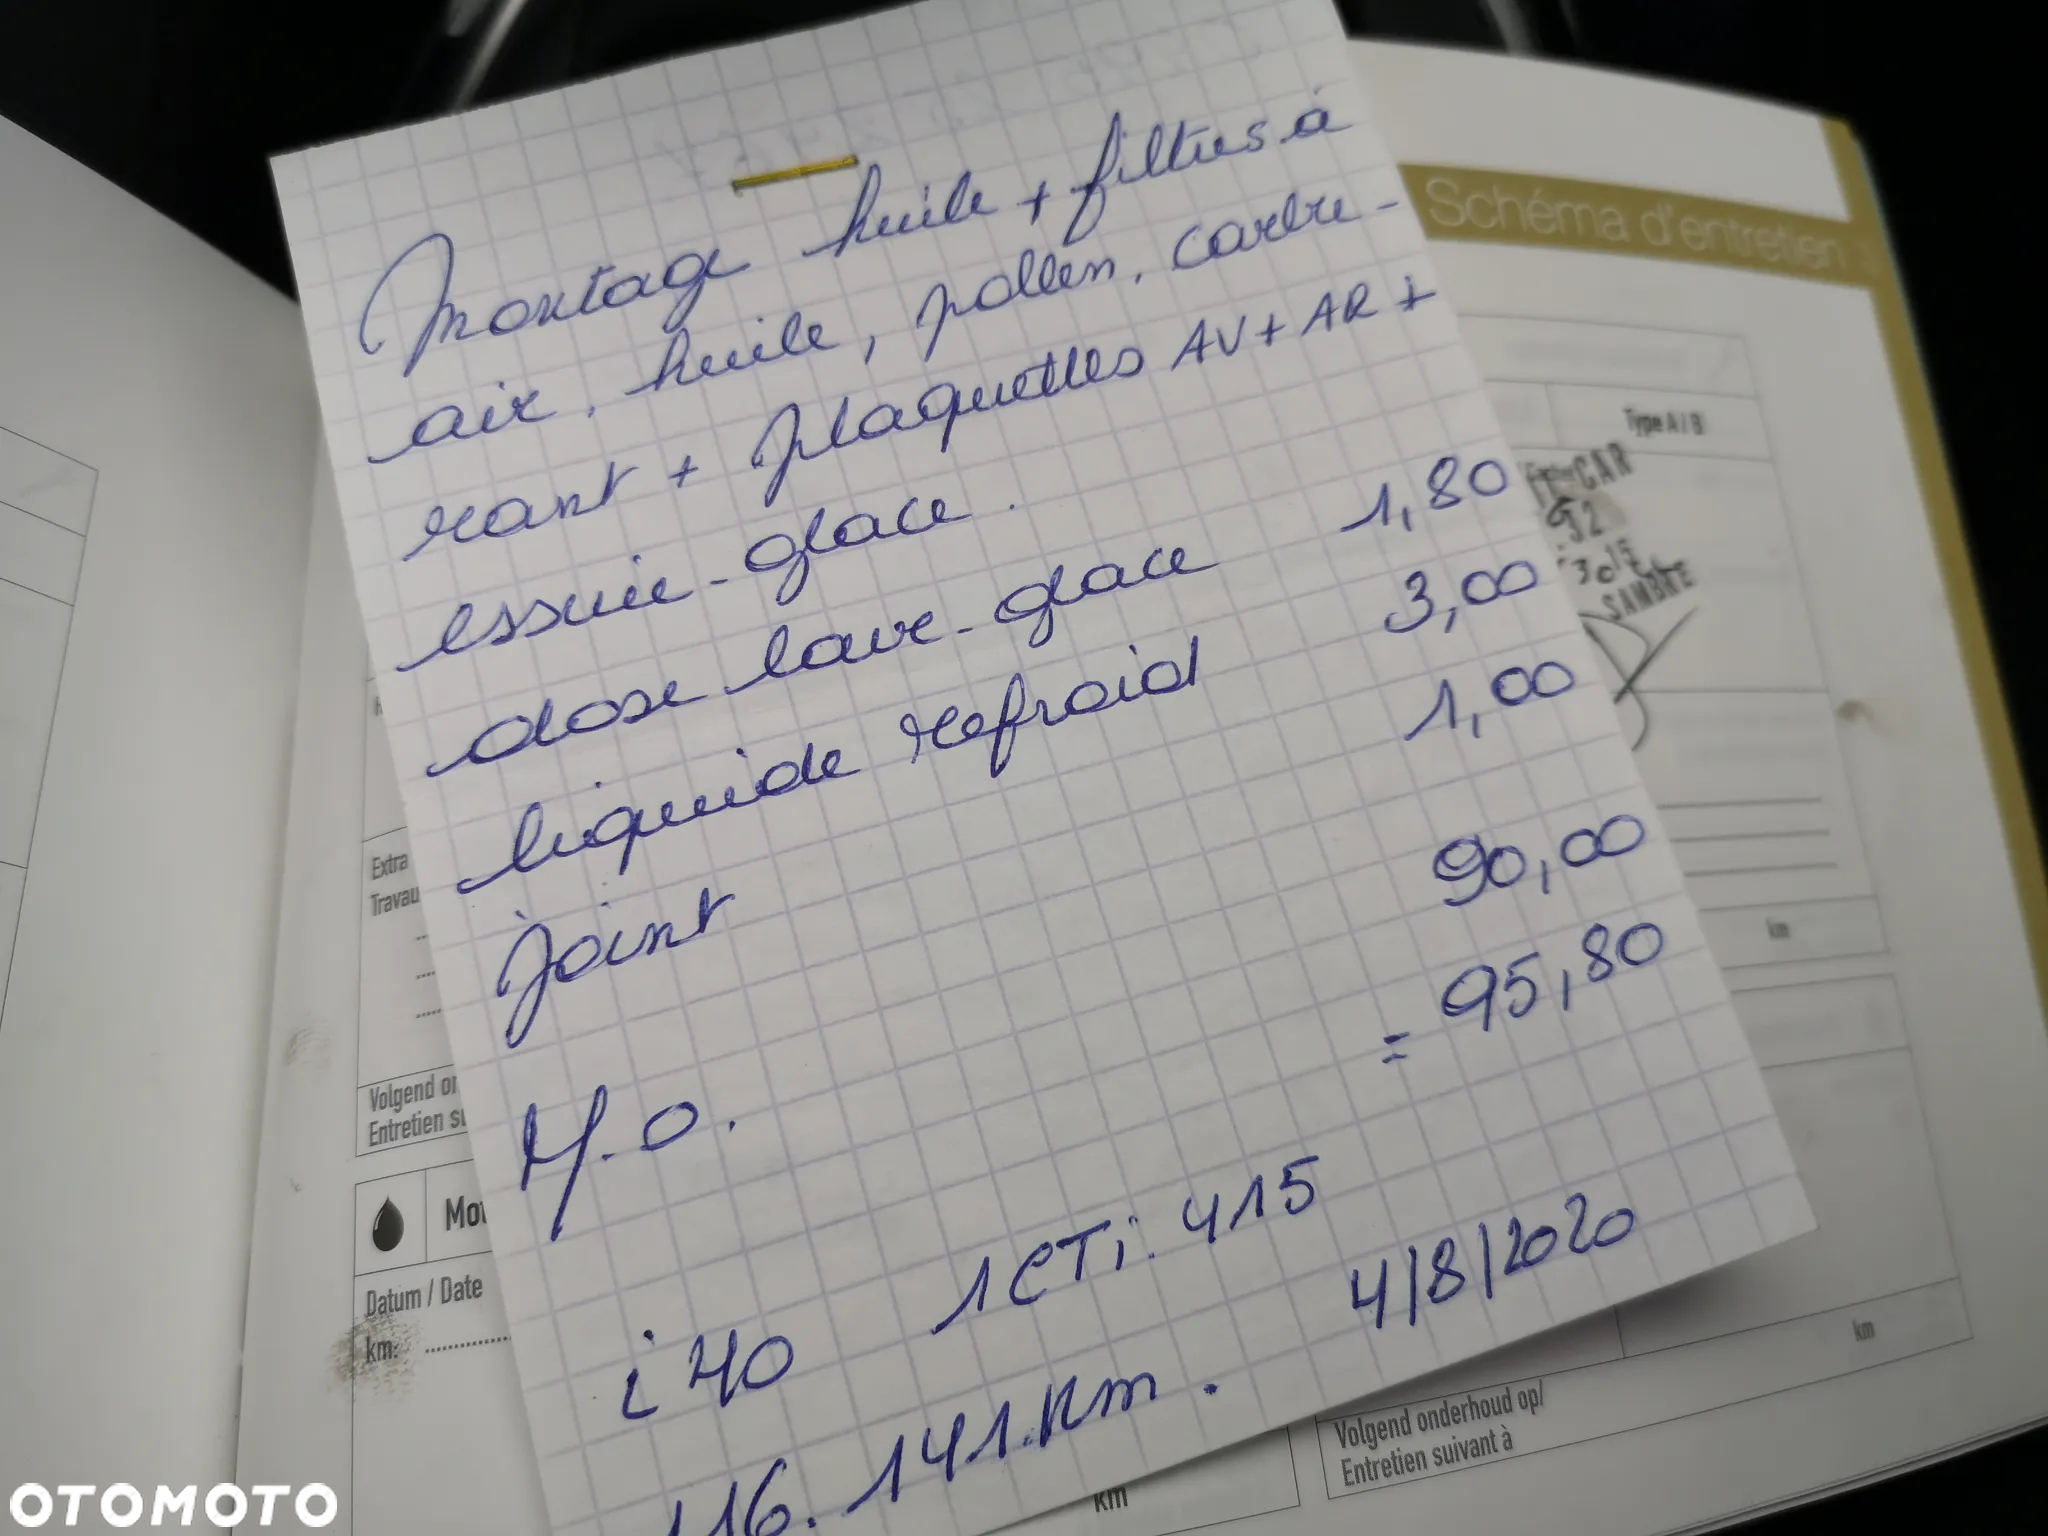 Montage huile + filtres à
air, huile, pollen, carbu-
rant + plaquettes AV + AR +
essuie-glace.
dose lave-glace 1,80
liquide refroid 3,00
joint 1,00
M.O. 90,00
= 95,80
i40 1CTi.415
116.141.Km. 4/8/2020
Schéma d'entretien
Type A / B
CAR
92
SAMBRE
km
Extra
Travau
Volgend on
Entretien su
Mot
Datum / Date
km:
km
Volgend onderhoud op/
Entretien suivant à
km
OTOMOTO